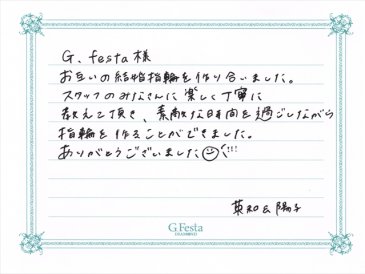 G.festa様
お互いの結婚指輪を作り合いました。
スタッフのみなさんに楽しく丁寧に
教えて頂き、素敵な時間を過ごしながら
指輪を作ることができました。
ありがとうございました
英和&陽子
G.Festa